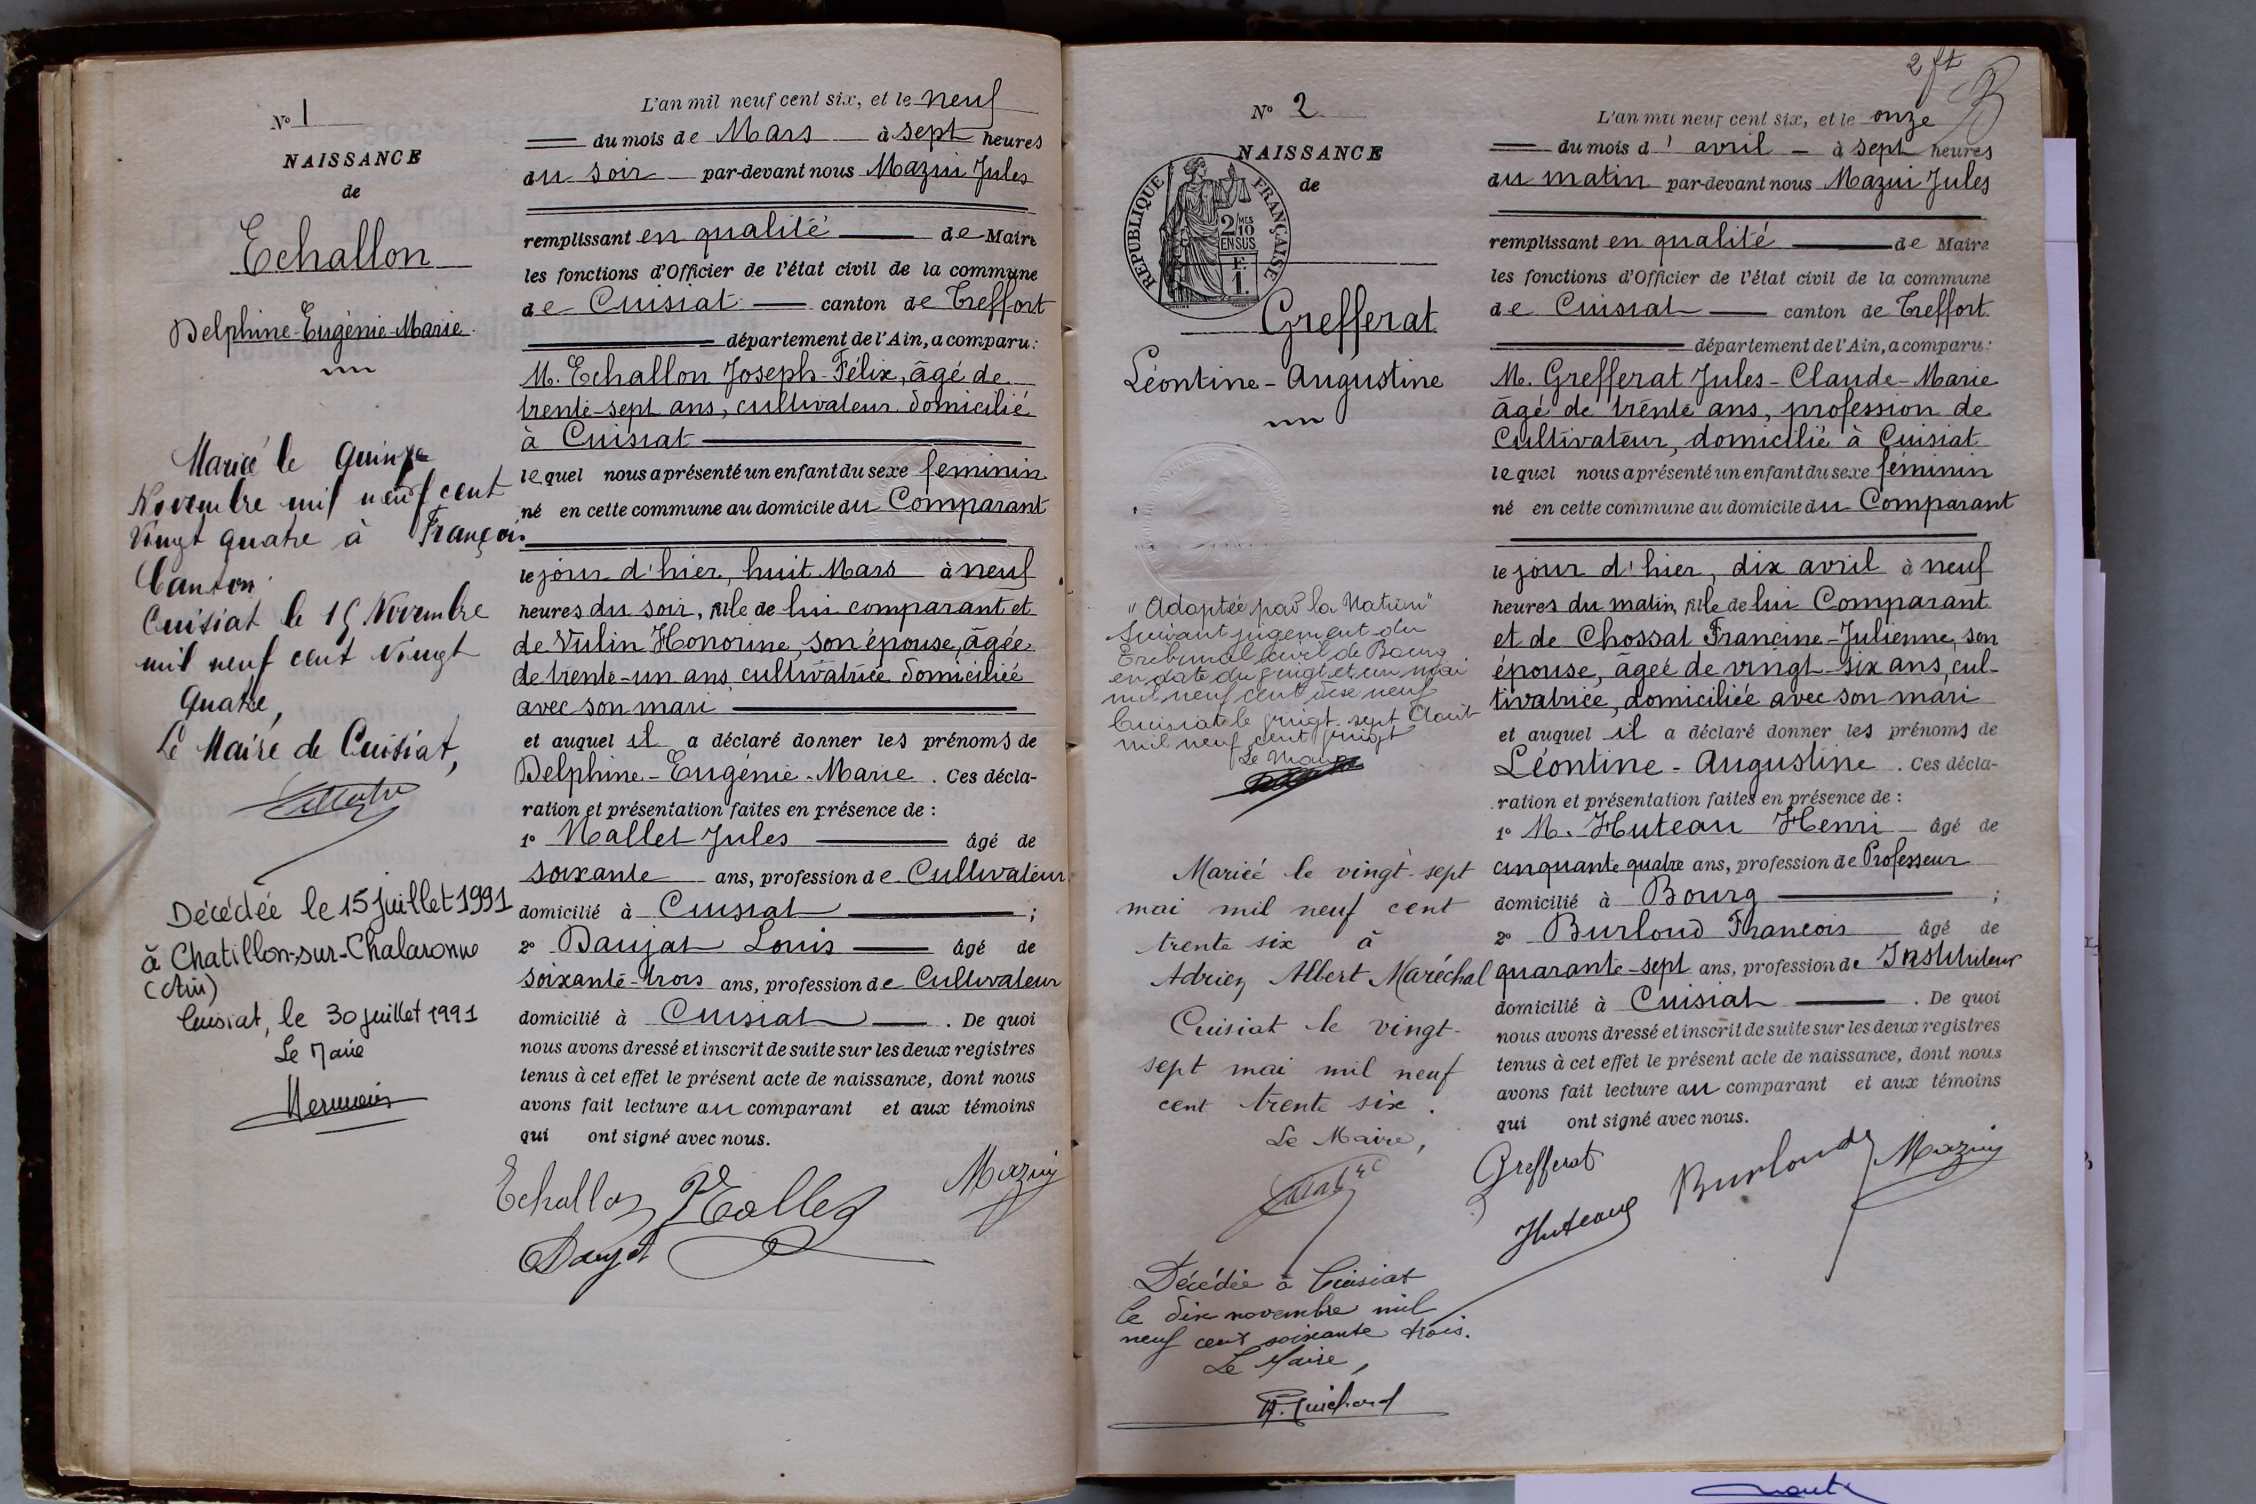 N° 1
NAISSANCE
de
Echallon
Delphine-Eugénie-Marie
Mariée le quinze
Novembre mil neuf cent
Vingt quatre à François
Canton
Cuisiat le 15 Novembre
mil neuf cent Vingt
Quatre,
Le Maire de Cuisiat,
Décédée le 15 juillet 1991
à Chatillon-sur-Chalaronne
(Ain)
Cuisiat, le 30 juillet 1991
Le Maire
L'an mil neuf cent six, et le neuf
du mois de Mars à sept heures
du soir par-devant nous Mazui Jules
remplissant en qualité de Maire
les fonctions d'Officier de l'état civil de la commune
de Cuisiat canton de Treffort
département de l'Ain, a comparu:
M. Echallon Joseph-Félix, âgé de
trente-sept ans, cultivateur domicilié
à Cuisiat
lequel nous a présenté un enfant du sexe féminin
né en cette commune au domicile du Comparant
le jour d'hier, huit Mars à neuf
heures du soir, fille de lui comparant et
de Vulin Honorine, son épouse, âgée
de trente-un ans, cultivatrice domiciliée
avec son mari
et auquel il a déclaré donner les prénoms de
Delphine-Eugénie-Marie. Ces décla-
ration et présentation faites en présence de :
1° Mallet Jules âgé de
soixante ans, profession de Cultivateur
domicilié à Cuisiat ;
2° Daujat Louis âgé de
soixante-trois ans, profession de Cultivateur
domicilié à Cuisiat . De quoi
nous avons dressé et inscrit de suite sur les deux registres
tenus à cet effet le présent acte de naissance, dont nous
avons fait lecture au comparant et aux témoins
qui ont signé avec nous.
Echallon Mallet Mazuy
Daujat
2 ft
N° 2
NAISSANCE
de
RÉPUBLIQUE FRANÇAISE
2/10 MES
EN SUS
F.
1.
Grefferat
Léontine-Augustine
"Adoptée par la Nation"
suivant jugement du
Tribunal civil de Bourg
en date du vingt et un mai
mil neuf cent dix neuf
Cuisiat le vingt-sept Août
mil neuf cent vingt
Le Maire
Mariée le vingt-sept
mai mil neuf cent
trente six à
Adrien Albert Maréchal
Cuisiat le vingt-
sept mai mil neuf
cent trente six.
Le Maire,
Décédée à Cuisiat
le dix novembre mil
neuf cent soixante trois.
Le Maire,
Guichard
L'an mil neuf cent six, et le onze
du mois d'avril à sept heures
du matin par-devant nous Mazui Jules
remplissant en qualité de Maire
les fonctions d'Officier de l'état civil de la commune
de Cuisiat canton de Treffort
département de l'Ain, a comparu:
M. Grefferat Jules-Claude-Marie
âgé de trente ans, profession de
Cultivateur, domicilié à Cuisiat
lequel nous a présenté un enfant du sexe féminin
né en cette commune au domicile du Comparant
le jour d'hier, dix avril à neuf
heures du matin, fille de lui Comparant
et de Chossat Francine-Julienne, son
épouse, âgée de vingt-six ans, cul-
tivatrice, domiciliée avec son mari
et auquel il a déclaré donner les prénoms de
Léontine-Augustine. Ces décla-
ration et présentation faites en présence de :
1° M. Huteau Henri âgé de
cinquante quatre ans, profession de Professeur
domicilié à Bourg ;
2° Burloud François âgé de
quarante-sept ans, profession de Instituteur
domicilié à Cuisiat . De quoi
nous avons dressé et inscrit de suite sur les deux registres
tenus à cet effet le présent acte de naissance, dont nous
avons fait lecture au comparant et aux témoins
qui ont signé avec nous.
Grefferat Burloud Mazuy
Huteau